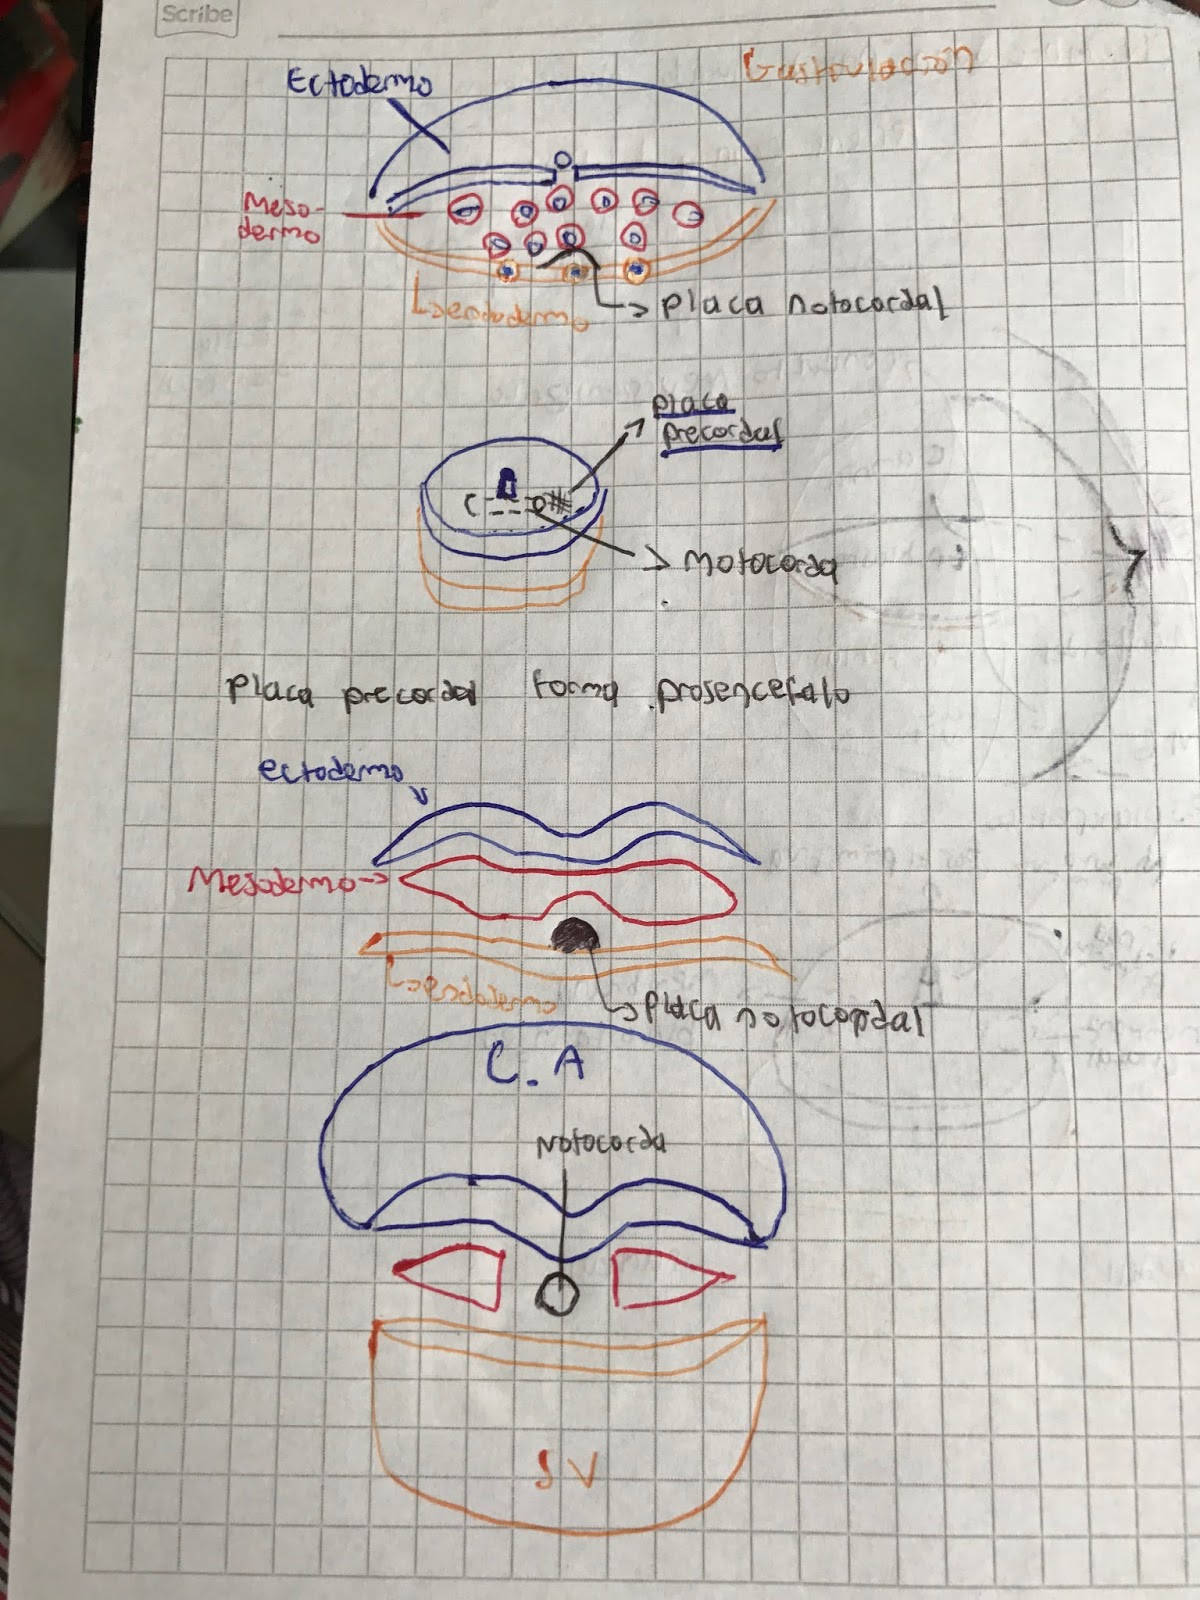 Scribe
Gastrulación
Ectodermo
Meso-
dermo
endodermo
placa notocordal
placa
precordal
C
Notocorda
placa precordal forma prosencefalo
ectodermo
Mesodermo
endodermo
placa notocordal
C.A
Notocorda
SV